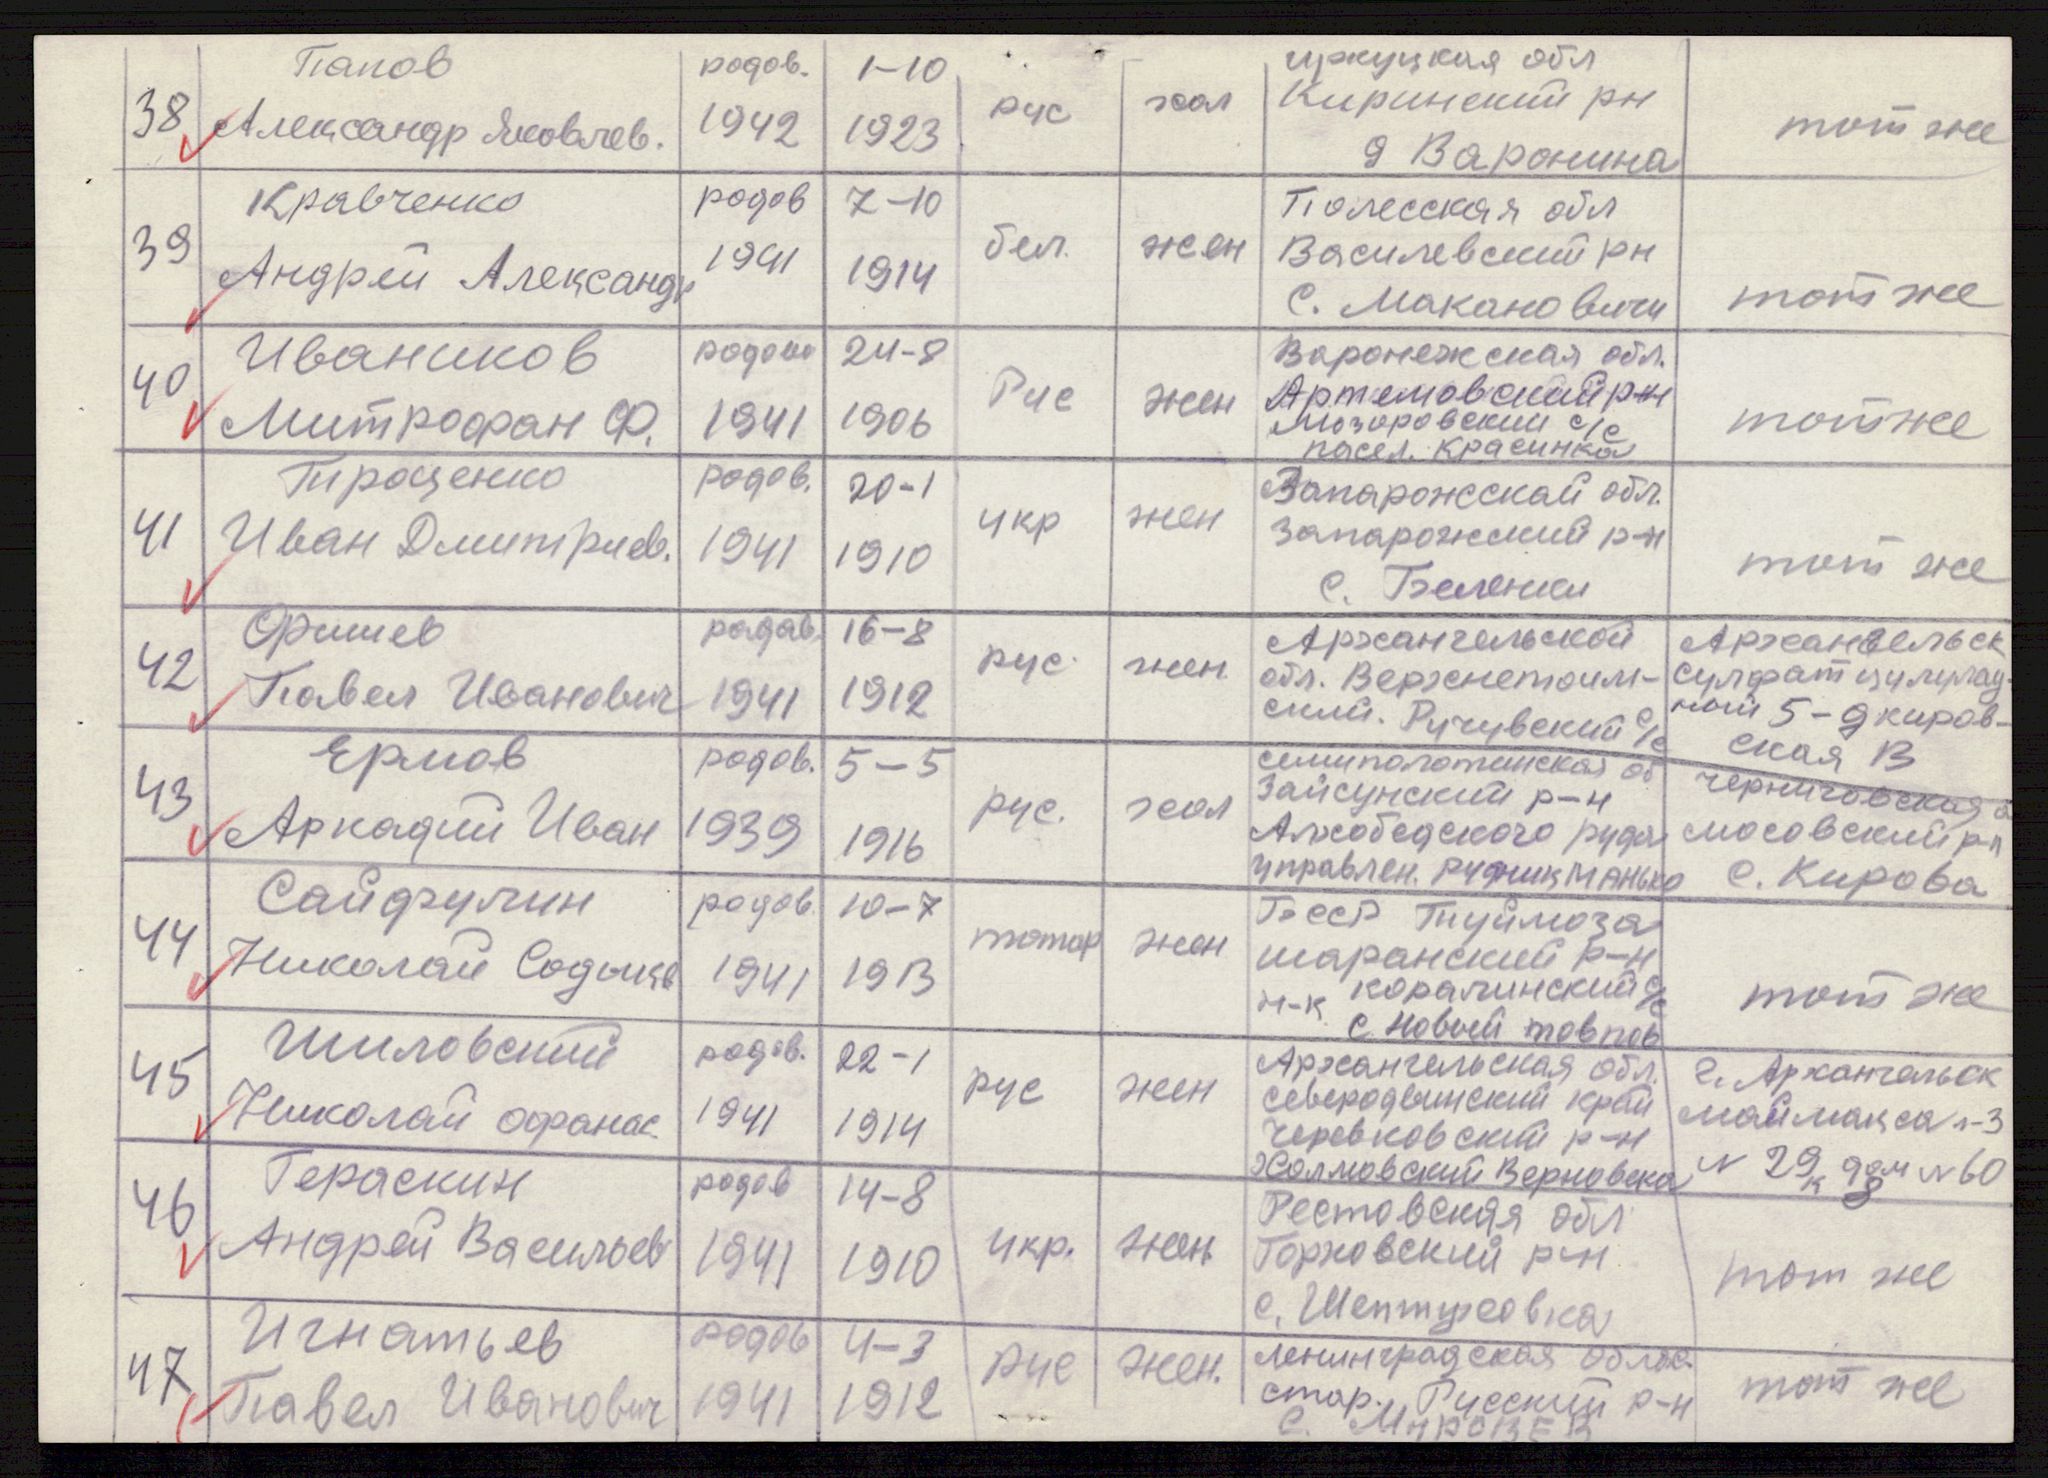 38 Папов родов. 1-10 рус хол иркуцкая обл тот же
Александр Яковлев. 1942 1923 Киринский рн
д Варонина
39 Кравченко родов 7-10 бел. жен Полесская обл тот же
Андрей Александр 1941 1914 Василевский рн
С. Макановичи
40 Иваников родово 24-8 Рус жен Варонежская обл. тот же
Митрофан Ф. 1941 1906 Артемовский р-н
Мозоровский с/с
посел. Красинка
41 Проценко родов. 20-1 укр жен Запарожсскай обл. тот же
Иван Дмитриев. 1941 1910 Запарожский р-н
с. Беленки
42 Оришев родав. 16-8 рус. жен. Архангельской Архангельск
Павел Иванович 1941 1912 обл. Верхнетоим- сулфат цулулад-
ский. Ручувский с/с ный 5-д киров-
ская В
43 Ермов родов. 5-5 рус. хол семиполотинская об черниговская о
Аркадий Иван 1939 1916 Зайсунский р-н мосовский р-н
Ажобедского рудо с. Кирова
управлен. рудник Манько
44 Сайфулин родов. 10-7 татар жен БССР Туймоза тот же
Николай Содыцев 1941 1913 шаранский р-н
н-к коралинский с/с
с. Новый товпов
45 Шиловский родов. 22-1 рус жен Архангельская обл. г. Архангельск
Николай офанас. 1941 1914 северодвинский край маймакса л-3
Черевковский р-н N 29к дом N 60
Холмовский Верновска 8
46 Гераскин родов 14-8 укр. жен. Рестовская обл тот же
Андрей Васильев 1941 1910 Горховский р-н
с. Шептуховка
47 Игнатьев родов 4-3 рус жен. Ленинградская облас. тот же
Павел Иванович 1941 1912 стар. Русский р-н
с. Муровев